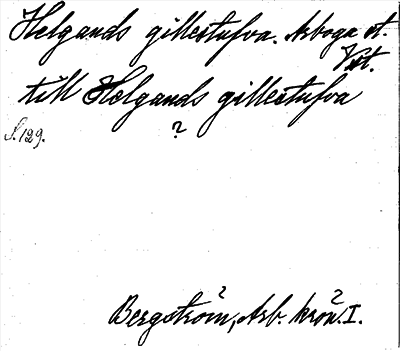 Helgands gillestufva. Arboga st.
Vstm.
till Helgands gillestufva
S. 129. ?
Bergström, Arb. krön. I.